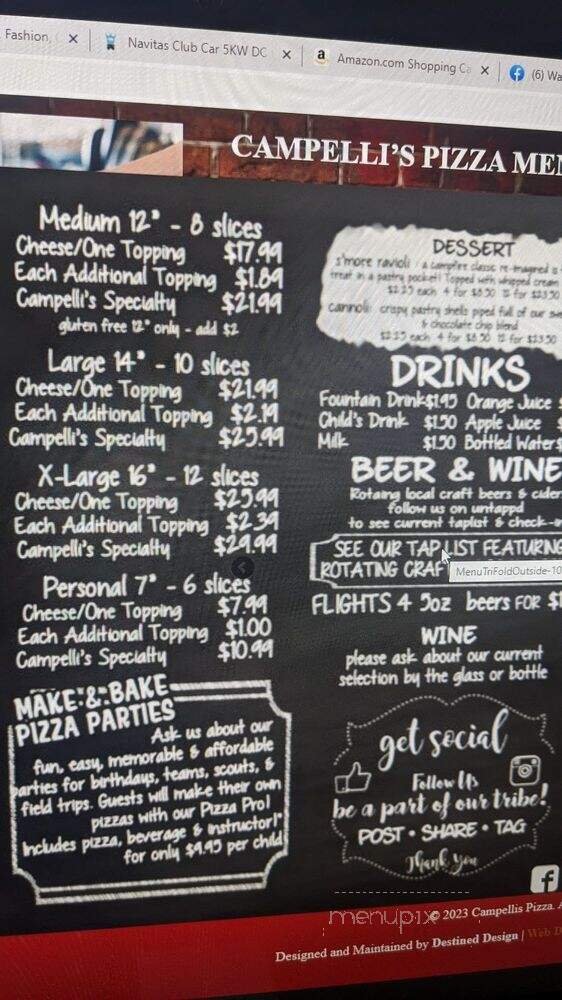 Fashion,
Navitas Club Car 5KW DC
Amazon.com Shopping Ca
(6) Wa
CAMPELLI'S PIZZA MEN
Medium 12" - 8 slices
Cheese/One Topping $17.99
Each Additional Topping $1.89
Campelli's Specialty $21.99
gluten free 12" only - add $2
Large 14" - 10 slices
Cheese/One Topping $21.99
Each Additional Topping $2.19
Campelli's Specialty $25.99
X-Large 16" - 12 slices
Cheese/One Topping $25.99
Each Additional Topping $2.39
Campelli's Specialty $29.99
Personal 7" - 6 slices
Cheese/One Topping $7.99
Each Additional Topping $1.00
Campelli's Specialty $10.99
MAKE & BAKE
PIZZA PARTIES
Ask us about our
fun, easy, memorable & affordable
parties for birthdays, teams, scouts, &
field trips. Guests will make their own
pizzas with our Pizza Pro!
Includes pizza, beverage & instructor!*
for only $9.95 per child
DESSERT
s'more ravioli : a campfire classic re-imagined is
treat in a pastry pocket! Topped with whipped cream
$2.25 each 4 for $8.50 12 for $23.50
cannoli: crispy pastry shells piped full of our swe
& chocolate chip blend
$2.25 each 4 for $8.50 12 for $23.50
DRINKS
Fountain Drink $1.95 Orange Juice $
Child's Drink $1.50 Apple Juice $
Milk $1.50 Bottled Water $
BEER & WINE
Rotaing local craft beers & cider
follow us on untappd
to see current taplist & check-in
SEE OUR TAP LIST FEATURING
ROTATING CRAF
MenuTriFoldOutside-10
FLIGHTS 4 5oz beers FOR $1
WINE
please ask about our current
selection by the glass or bottle
get social
Follow Us
be a part of our tribe!
POST • SHARE • TAG
Thank You
menupix
© 2023 Campellis Pizza. A
Designed and Maintained by Destined Design | Web D